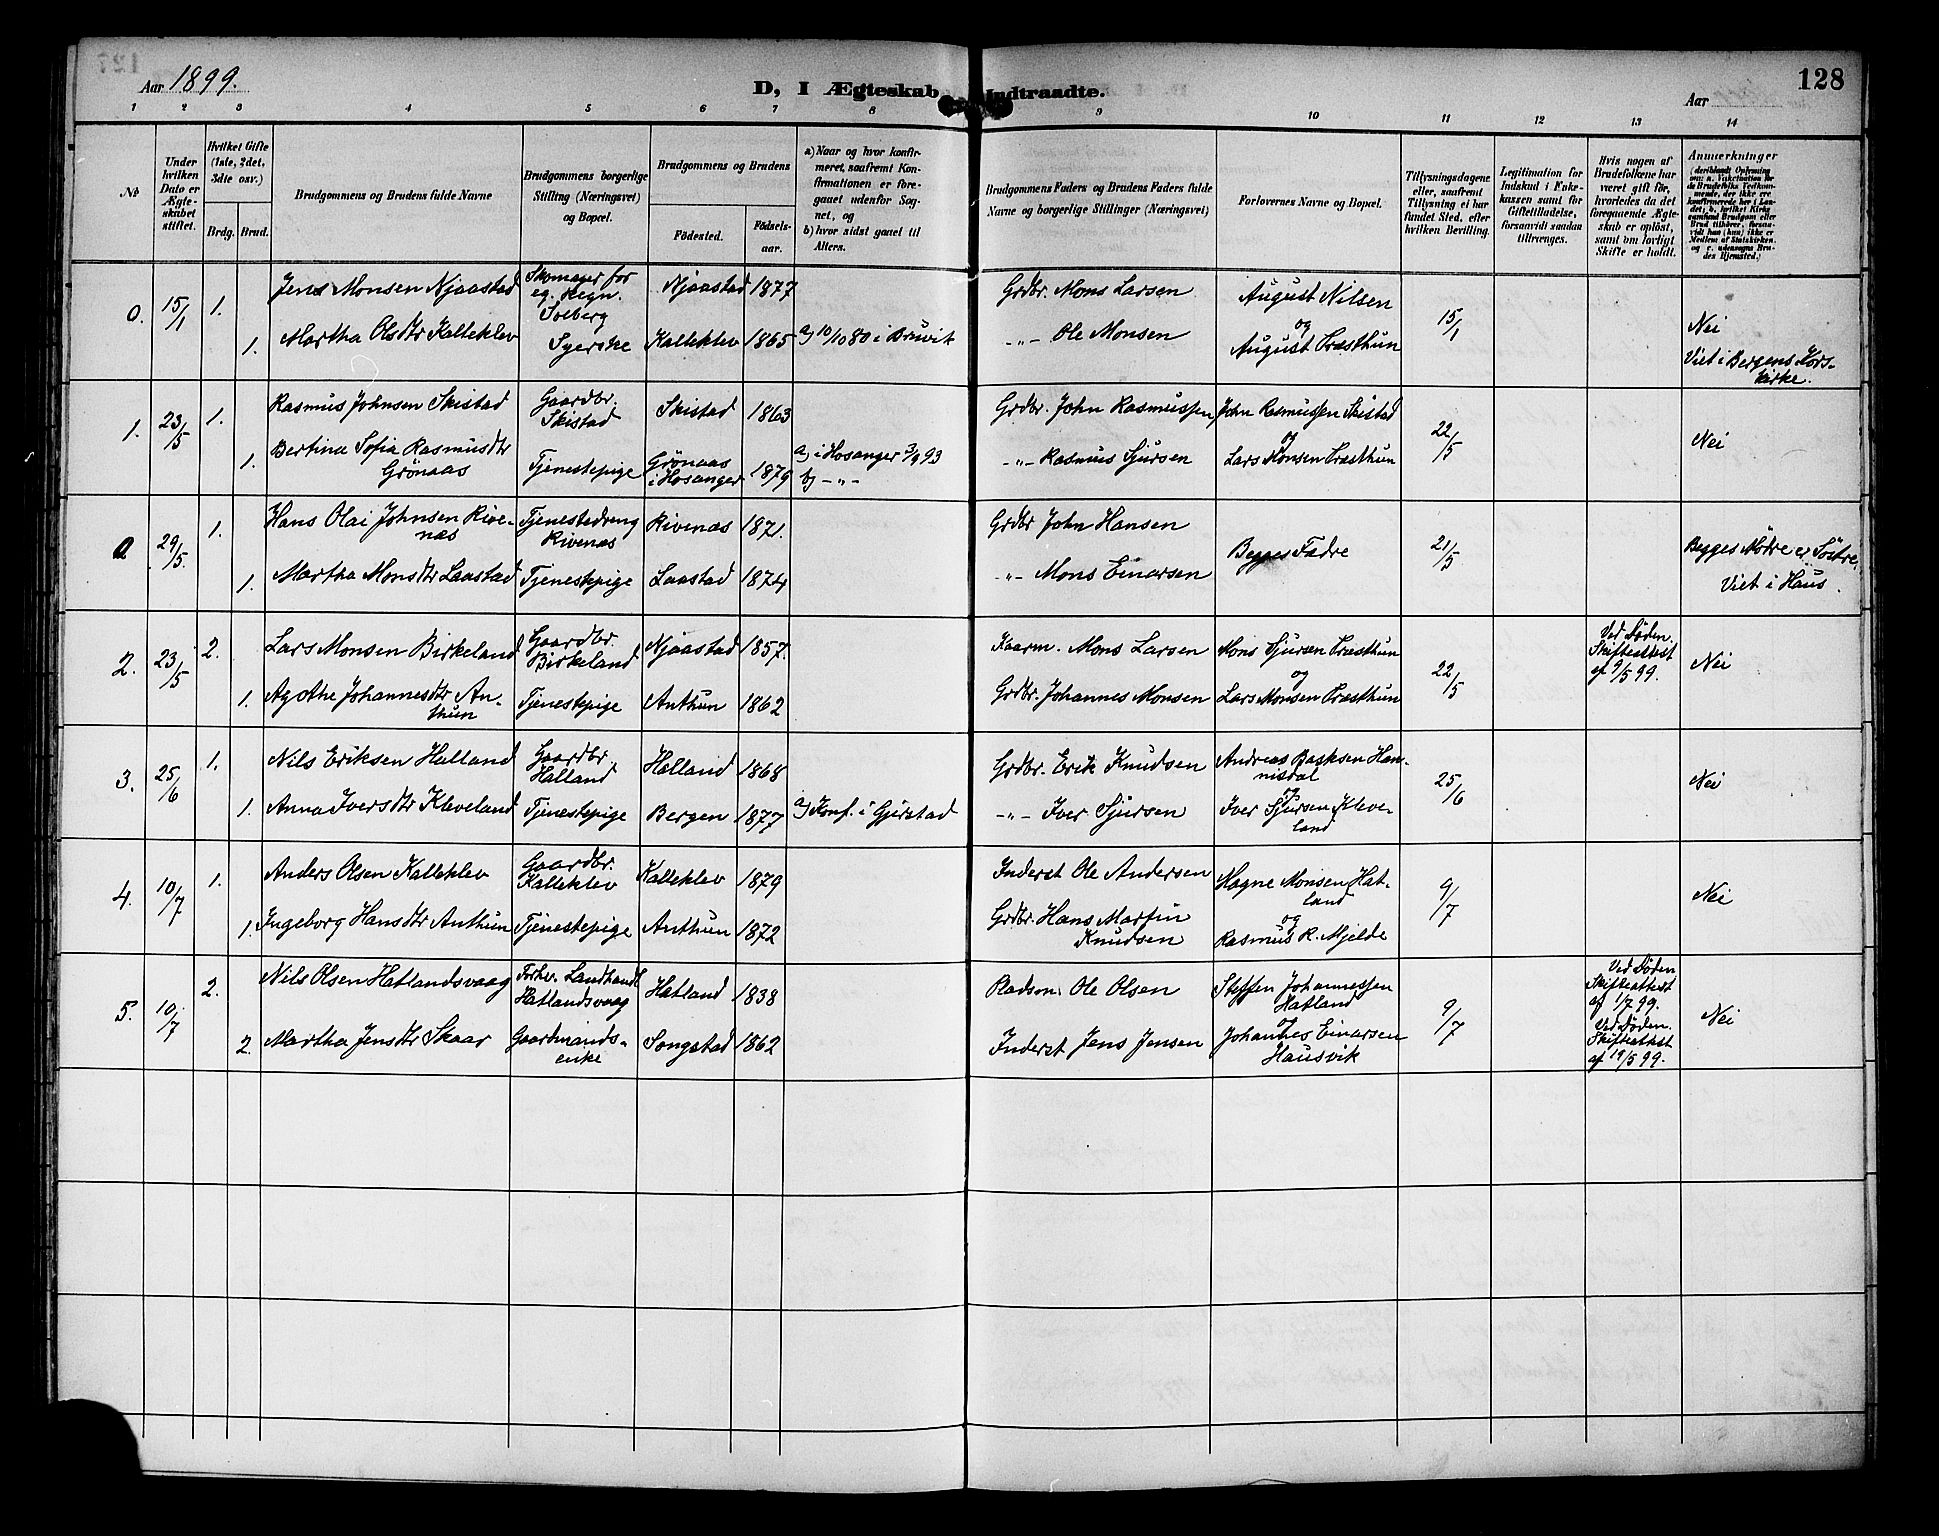 127
128
Aar 1899.
D, I Ægteskab Indtraadte.
Aar
1 2 3 4 5 6 7 8 9 10 11 12 13 14
No
Under hvilken Dato er Ægteskabet stiftet.
Hvilket Gifte (1ste, 2det, 3die osv.)
Brdg. Brud.
Brudgommens og Brudens fulde Navne
Brudgommens borgerlige Stilling (Næringsvei) og Bopæl.
Brudgommens og Brudens
Fødested.
Fødselsaar.
a) Naar og hvor konfirmeret, saafremt Konfirmationen er foregaaet udenfor Sognet, og
b) hvor sidst gaaet til Alters.
Brudgommens Faders og Brudens Faders fulde Navne og borgerlige Stillinger (Næringsvei)
Forlovernes Navne og Bopæl.
Tillysningsdagene eller, saafremt Tillysning ei har fundet Sted, efter hvilken Bevilling.
Legitimation for Indskud i Enkekassen samt for Giftetilladelse, forsaavidt saadan tiltrænges.
Hvis nogen af Brudefolkene har været gift før, hvorledes da det foregaaende Ægteskab er opløst, samt om lovligt Skifte er holdt.
Anmærkninger
0. 15/1 1.
Jens Monsen Njaastad
Skomager for eg. Regn. Solberg
Njaastad 1877
Grdbr. Mons Larsen
August Nilsen
og
August Træsthun
15/1
Nei
Viet i Bergens Korskirke.
1. Martha Olsdtr Kalleklev
Syerske
Kalleklev 1865
a) 10/10 80 i Bruvik
-"- Ole Monsen
1. 23/5 1.
Rasmus Johnsen Skistad
Gaardbr. Skistad
Skistad 1863
Grdbr. John Rasmussen
John Rasmussen Skistad
og
Lars Monsen Træsthun
22/5
Nei
1. Bertina Sofia Rasmusdtr Grönaas
Tjenestepige
Grönaas i Hosanger 1879
a) i Hosanger 3/9 93
b) -"-
-"- Rasmus Sjursen
0 29/5. 1.
Hans Olai Johnsen Rivenæs
Tjenestedreng Rivenæs
Rivenæs 1871.
Grdbr John Hansen
Begges Fædre
21/5
Begges Mødre er Söstre.
Viet i Haus.
1. Martha Monsdtr Laastad
Tjenestepige
Laastad 1874
-"- Mons Einarsen
2. 23/5 2.
Lars Monsen Birkeland
Gaardbr. Birkeland
Njaastad 1857.
Kaarm. Mons Larsen
Mons Sjursen Træsthun
og
Lars Monsen Træsthun
22/5
Ved Døden. Skifteattest af 9/5 99.
Nei
1. Agathe Johannesdtr Anthun
Tjenestepige
Anthun 1862
Grdbr. Johannes Monsen
3. 25/6 1.
Nils Eriksen Halland
Gaardbr. Halland
Halland 1868
Grdbr. Erik Knudsen
Andreas Hannisdal
og
Iver Sjursen Kleveland
25/6
Nei
1. Anna Iversdtr Kleveland
Tjenestepige
Bergen 1877
a) Konf. i Gjerstad
-"- Iver Sjursen
4. 10/7 1.
Anders Olsen Kalleklev
Gaardbr. Kalleklev
Kalleklev 1879
Inderst Ole Andersen
Magne Monsen Hatland
og
Rasmus R. Mjelde
9/7
Nei
1. Ingeborg Hansdtr Anthun
Tjenestepige
Anthun 1872
Grdbr. Hans Martin Knudsen
5. 10/7 2.
Nils Olsen Hatlandsvaag
Forhv. Landhandl. Hatlandsvaag
Hatland 1838
Pladsm. Ole Olsen
Steffen Johannessen Hatland
og
Johannes Einarsen Hausvik
9/7
Ved Døden Skifteattest af 1/7 99.
Ved Døden. Skifteattest af 19/5 99.
Nei
2. Martha Jensdtr Skaar
Gaardmandsenke
Songstad 1862
Inderst Jens Jensen